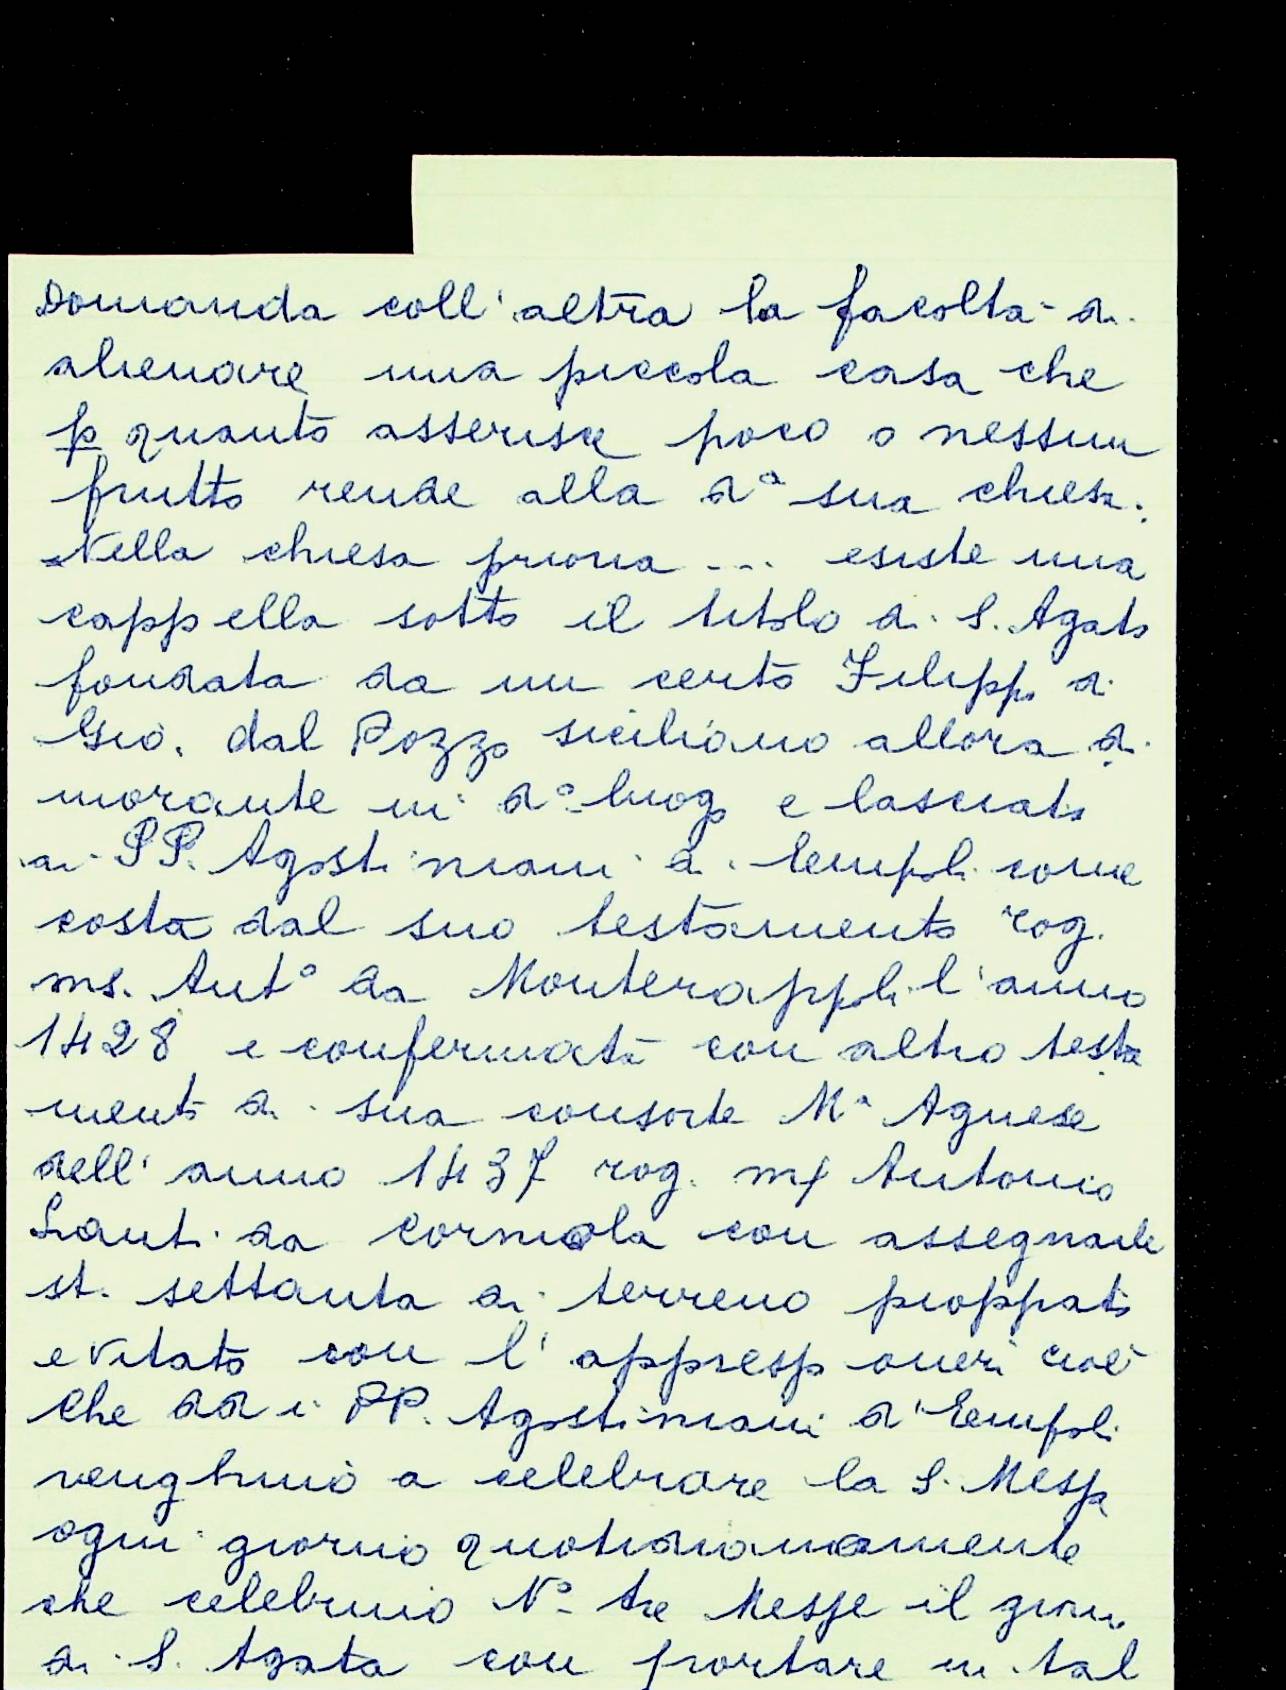 Domanda coll'altra la facoltà di
alienare una piccola casa che
p quanto asserisce poco o nessun
frutto rende alla dª sua chiesa.
Nella chiesa priora ... esiste una
cappella sotto il titolo di S. Agata
fondata da un certo Filippo di
Gio. dal Pozzo siciliano allora di
morante in dº luogo e lasciata
ai PP. Agostiniani di Empoli come
costa dal suo testamento rog.
ms. Antº da Monterappoli l'anno
1428 e confermata con altro testa
mento di sua consorte Mª Agnese
dell'anno 1437 rog. Antonio
da Corniola con assegnarle
st. settanta di terreno pioppato
e vitato con l'appresp oneri cioè
che dd i PP. Agostiniani d'Empoli
venghino a celebrare la S. Messa
ogni giorno quotidianamente
che celebrino Nº tre Messe il giorno
di S. Agata con portare in tal